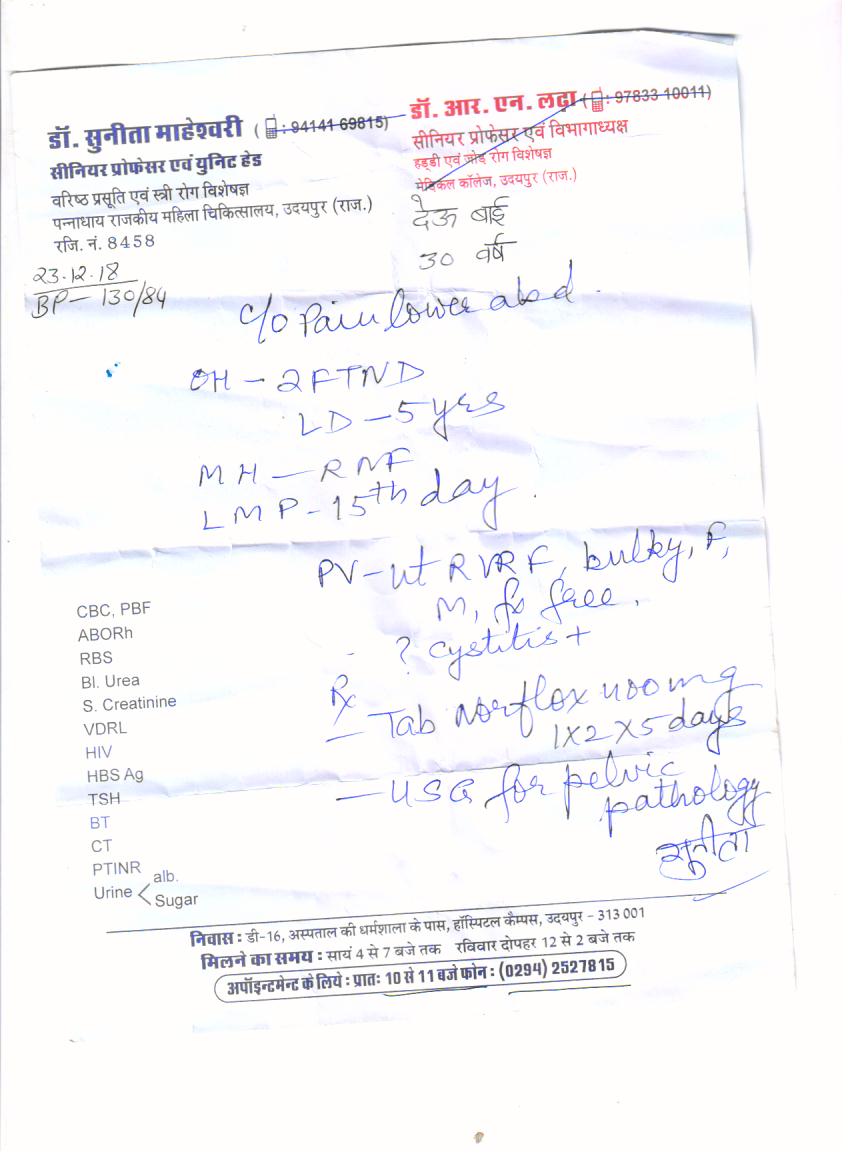 डॉ. सुनीता माहेश्वरी ( : 94141 69815)
सीनियर प्रोफेसर एवं युनिट हेड
वरिष्ठ प्रसूति एवं स्त्री रोग विशेषज्ञ
पन्नाधाय राजकीय महिला चिकित्सालय, उदयपुर (राज.)
रजि. नं. 8458
डॉ. आर. एन. लढ़ा ( : 97833 10011)
सीनियर प्रोफेसर एवं विभागाध्यक्ष
हड्डी एवं जोड़ रोग विशेषज्ञ
मेडिकल कॉलेज, उदयपुर (राज.)
देऊ बाई
30 वर्ष
23.12.18
BP- 130/84
c/o Pain lower abd.
OH - 2FTND
LD - 5 yrs
MH - RNF
LMP - 15th day.
PV - ut RVRF, bulky, F,
M, fx free.
? cystitis +
Rx
- Tab Norflox 400mg
1X2X5 days
- USG for pelvic
pathology
सुनीता
CBC, PBF
ABORh
RBS
Bl. Urea
S. Creatinine
VDRL
HIV
HBS Ag
TSH
BT
CT
PTINR
Urine < alb.
Sugar
निवास : डी-16, अस्पताल की धर्मशाला के पास, हॉस्पिटल कैम्पस, उदयपुर - 313 001
मिलने का समय : सायं 4 से 7 बजे तक रविवार दोपहर 12 से 2 बजे तक
अपॉइन्टमेन्ट के लिये : प्रातः 10 से 11 बजे फोन : (0294) 2527815